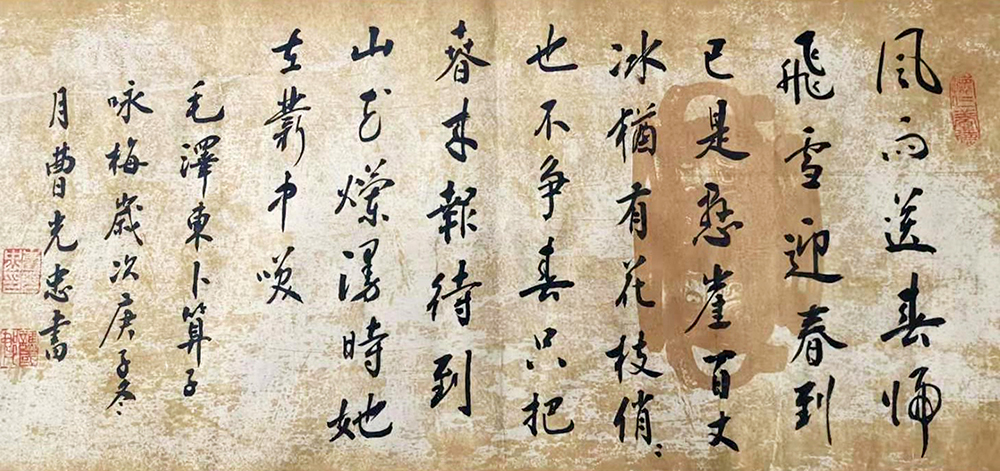 風雨送春歸
飛雪迎春到
已是懸崖百丈
冰猶有花枝俏俏
也不争春只把
春来報待到
山花爛漫時她
在叢中笑
毛澤東卜算子
咏梅歲次庚子冬
月曹光忠書